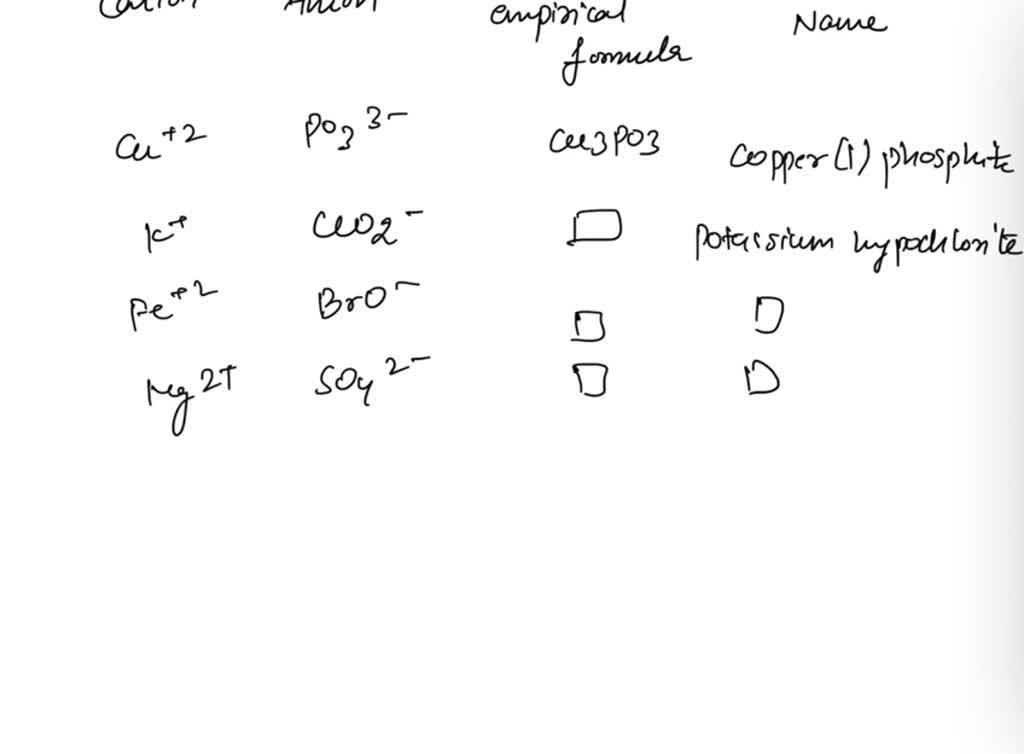 Cation Anion empirical formula Name
Cu+2 PO3 3- Cu3PO3 Copper (I) phosphite
K+ ClO2- potassium hypochlorite
Fe+2 BrO-
Mg 2+ SO4 2-